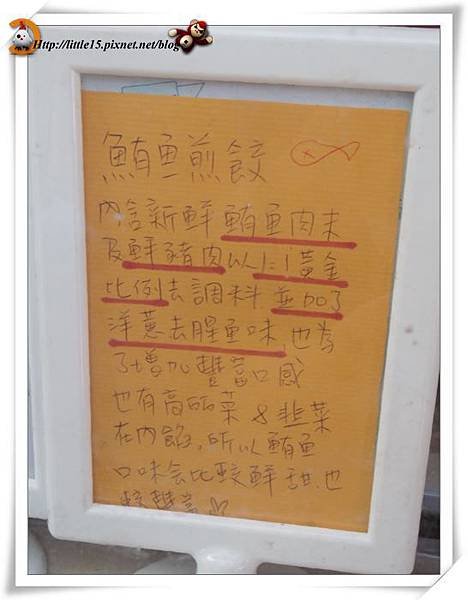 Http://little15.pixnet.net/blog
鮪魚煎餃
內含新鮮鮪魚肉末
及鮮豬肉以1:1黃金
比例去調料並加了
洋蔥去腥魚味,也為
了增加豐富口感
也有高麗菜&韭菜
在內餡,所以鮪魚
口味会比較鮮甜,也
較豐富